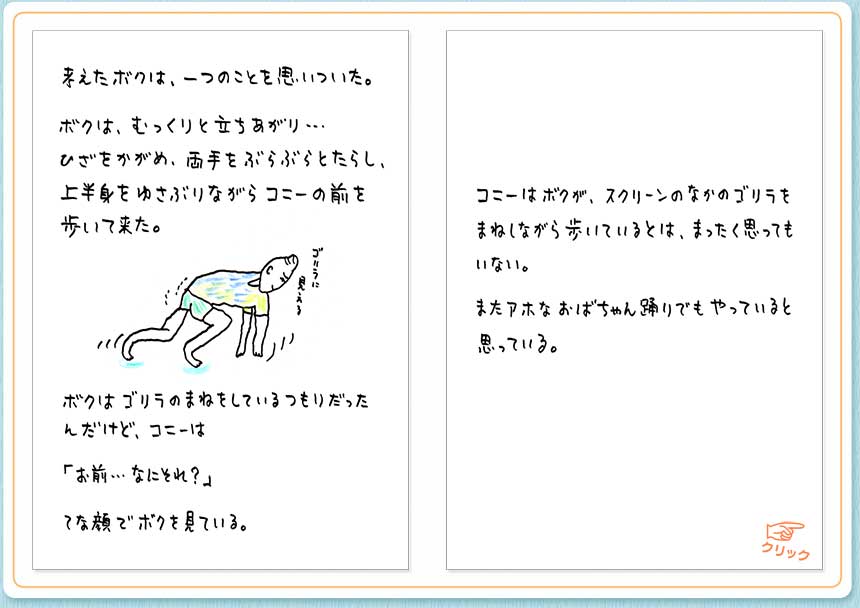 考えたボクは、一つのことを思いついた。
ボクは、むっくりと立ちあがり…
ひざをかがめ、両手をぶらぶらとたらし、
上半身をゆさぶりながらコニーの前を
歩いて来た。
ゴリラに
見える
ボクはゴリラのまねをしているつもりだった
んだけど、コニーは
「お前…なにそれ?」
てな顔でボクを見ている。
コニーはボクが、スクリーンのなかのゴリラを
まねしながら歩いているとは、まったく思っても
いない。
またアホなおばちゃん踊りでもやっていると
思っている。
クリック